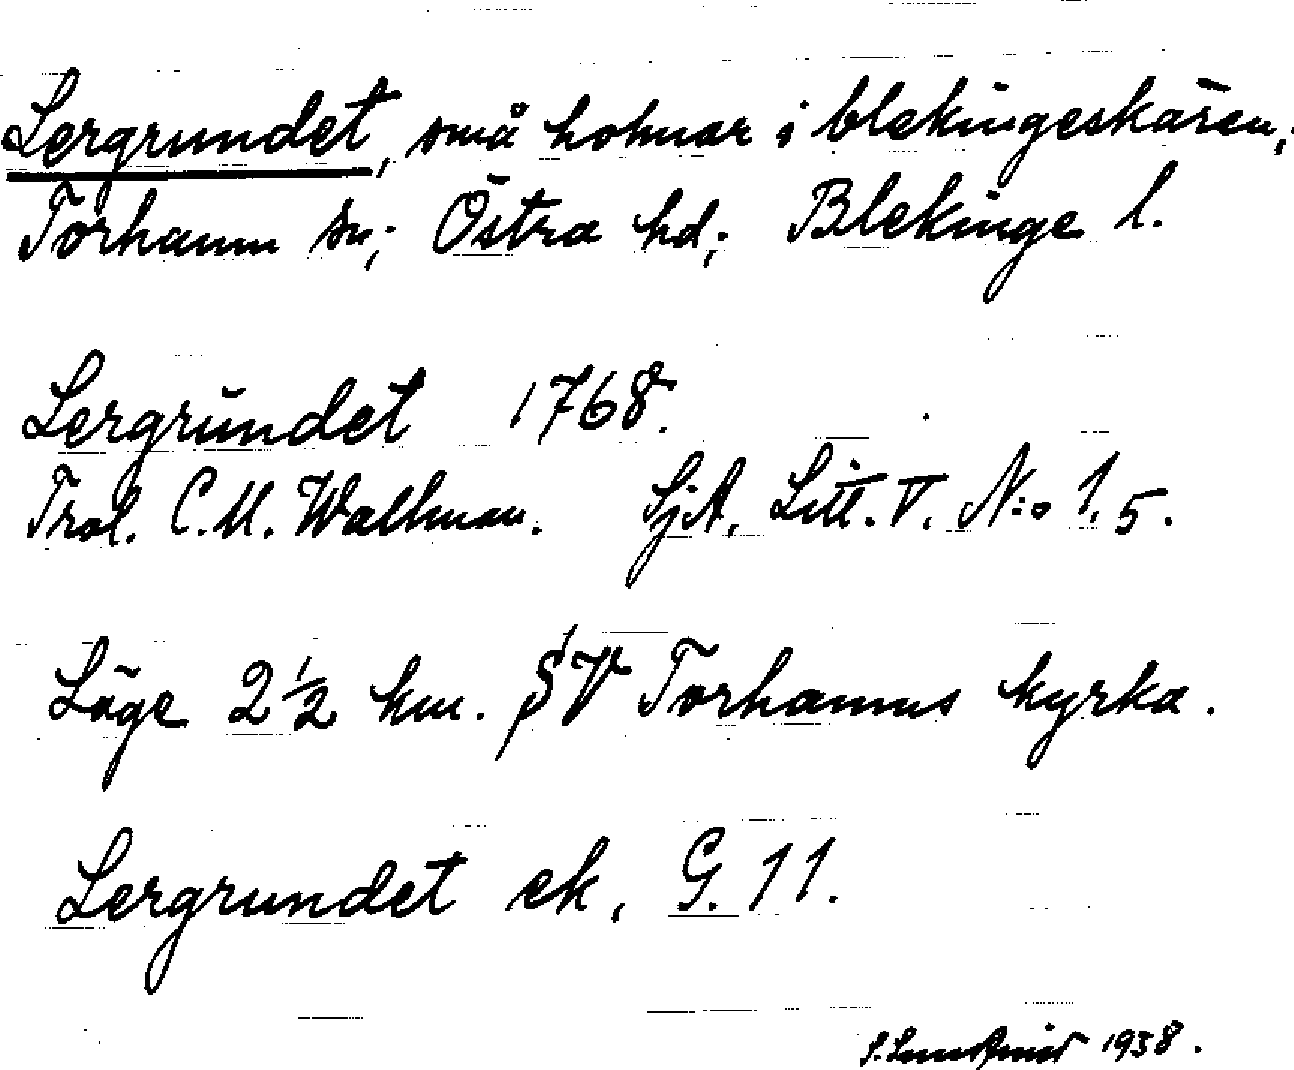 Lergrundet, små holmar i blekingeskären,
Torhamn sn; Östra hd; Blekinge l.
Lergrundet 1768.
Trol. C.M. Wallman. SjA, Litt. V. N:o 1, 5.
Läge 2 1/2 km. SV Torhamns kyrka.
Lergrundet ek, G. 11.
1938.